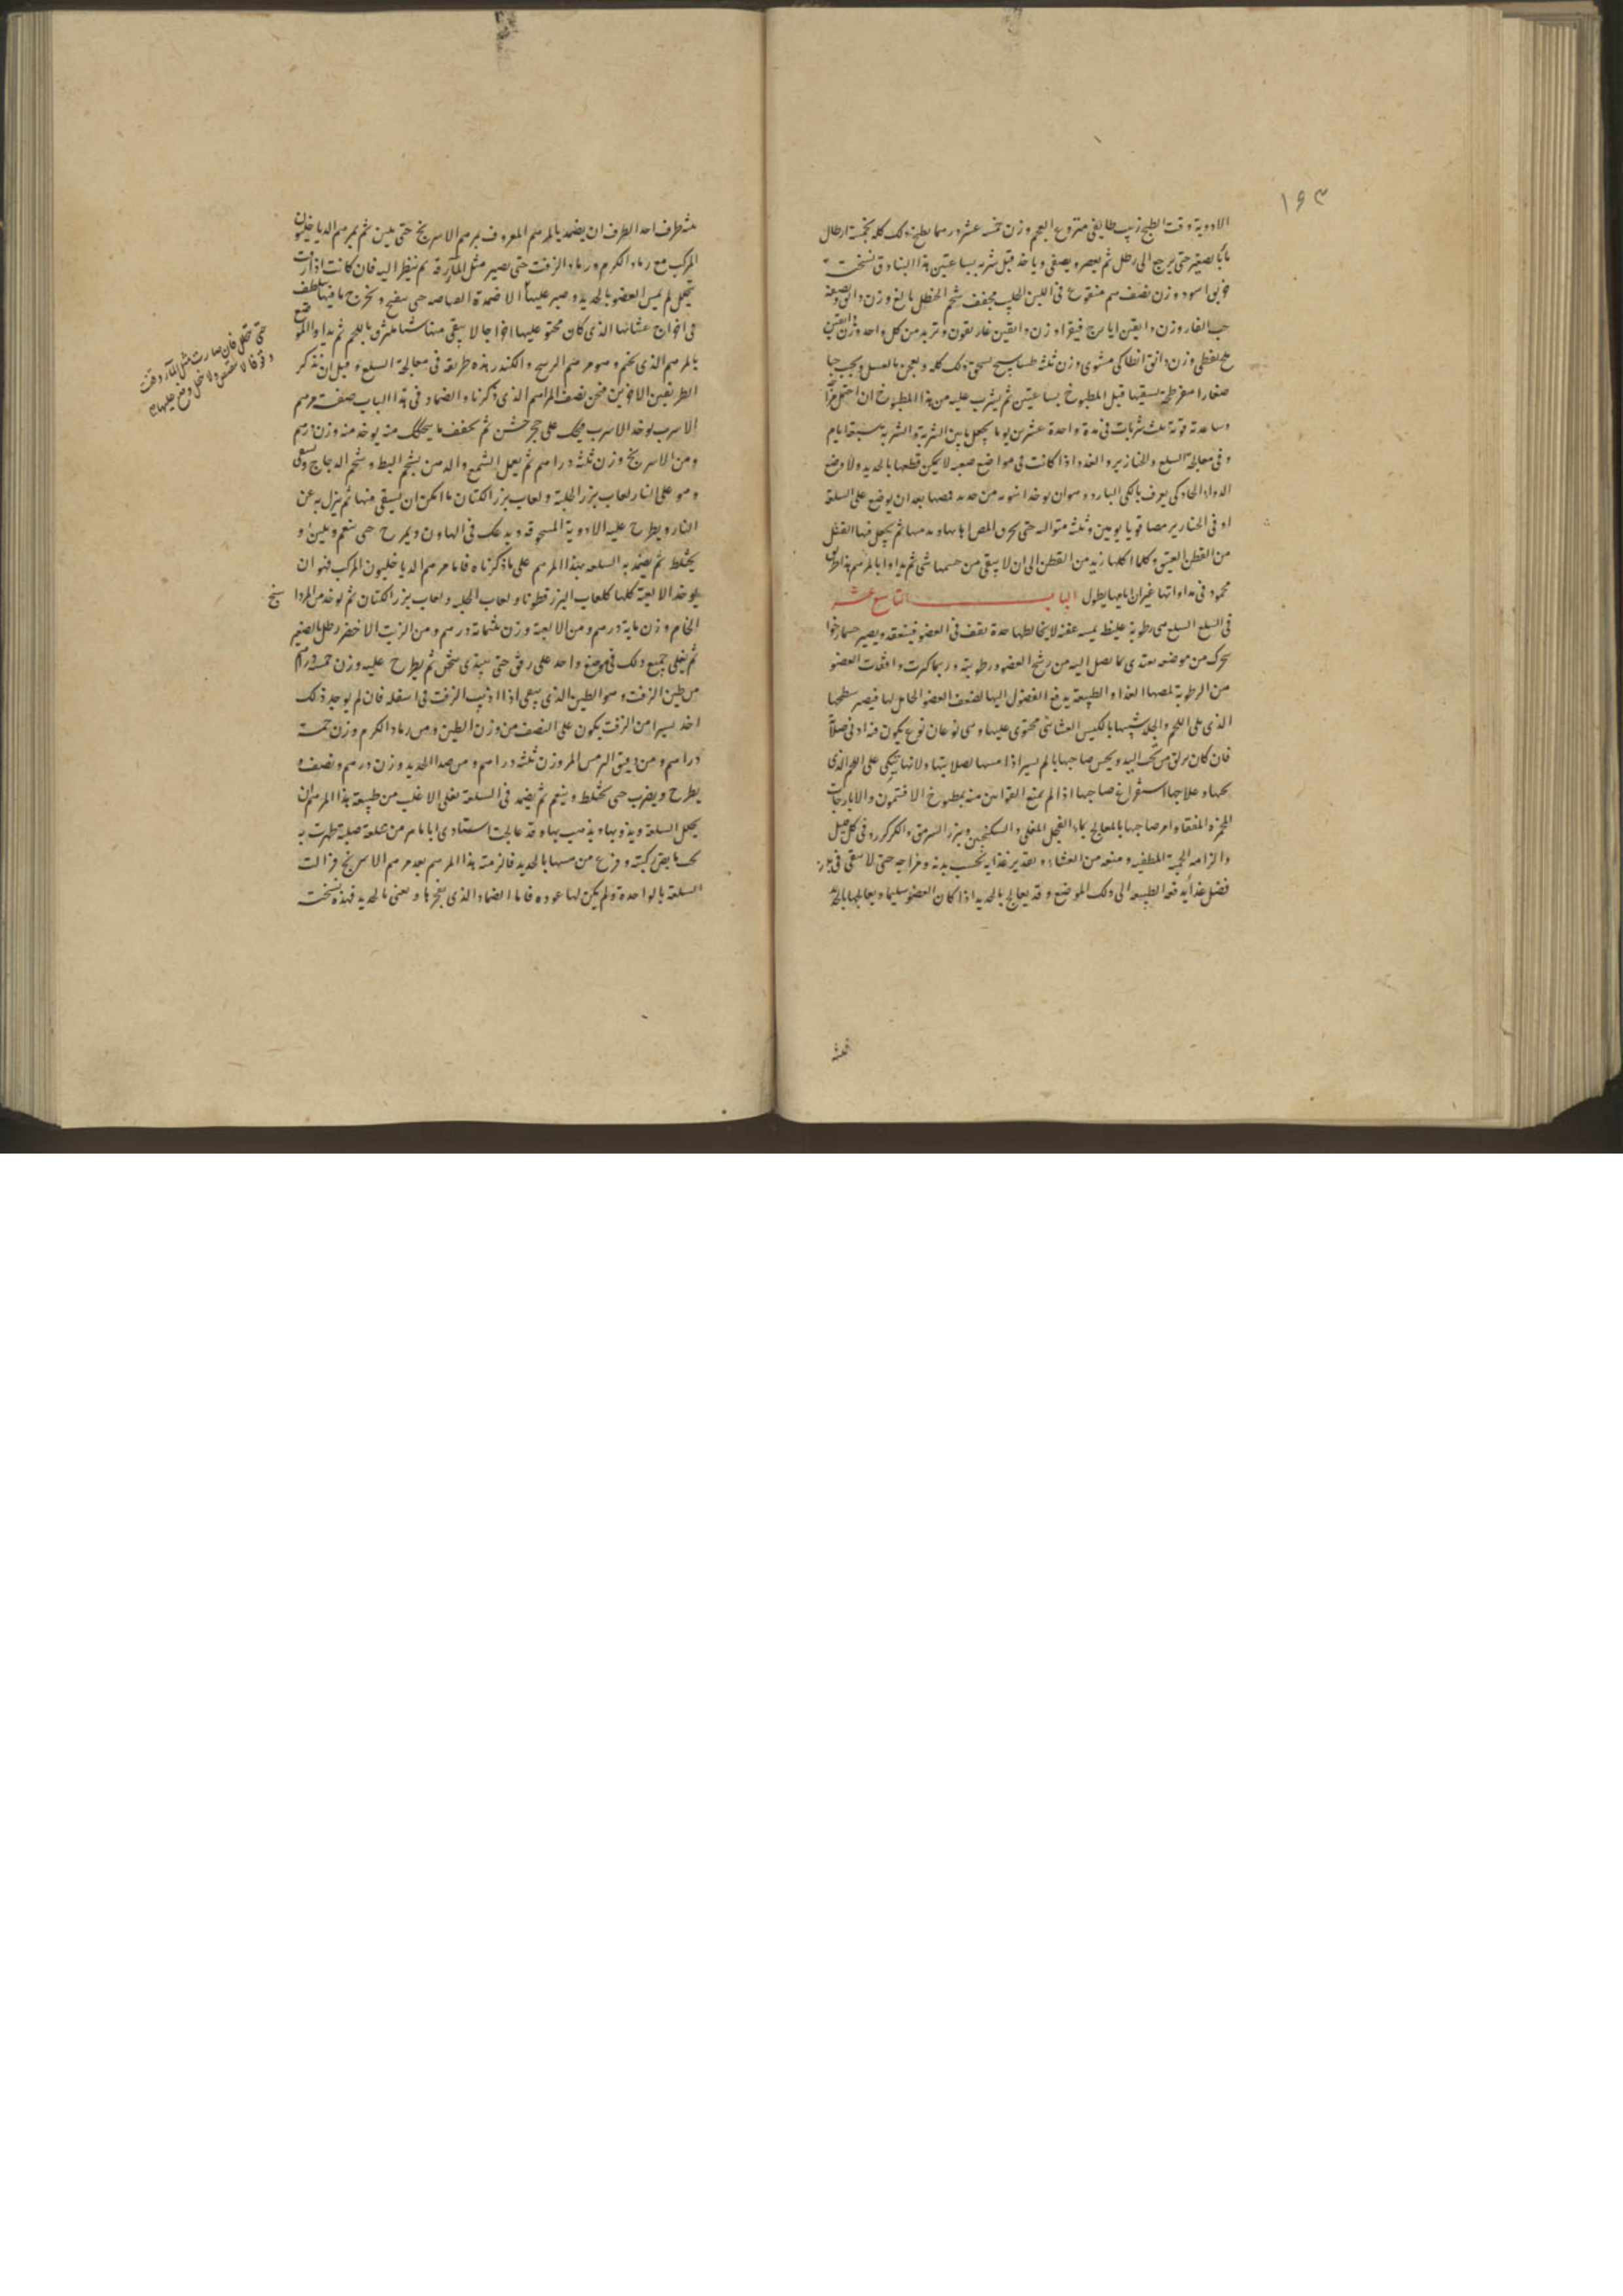 ١٦٣
الادوية وقت الطبخ زبيب طايفى منزوع العجم وزن خمسة عشر درهما يطبخ ذلك كله بخمسة ارطال
ماء بالصغير حتى يرجع الى رطل ثم يعصر ويصفى وياخذ قبل شربه بساعتين هذا البنادق نسخته
خربق اسود وزن نصف درهم منقوع فى اللبن الحليب مجفف شحم الحنظل بالغ وزن دانق ونصف
حب الغار وزن دانقين ايارج فيقرا وزن دانقين غاريقون وتربد من كل واحد وزن دانقين
ملح نفطى وزن دانق انطاكى مشوى وزن ثلثة طساسيج يسحق ذلك كله ويعجن بالعسل ويحبب حبا
صغارا مفرطحة يسقيها قبل المطبوخ بساعتين ثم يشرب عليه من هذا المطبوخ ان احتمل
وساعدته قوته ثلث شربات فى مدة واحدة عشرين يوما يجعل ما بين الشربة والشربة سبعة ايام
وفى معالجة السلع والخنازير والغدد اذا كانت فى مواضع صعبه لا يمكن قطعها بالحديد ولا وضع
الدواء الحاد كى يعرف بالكى البارد وهو ان يوخذ انبوبه من حديد فمصها بعد ان يوضع على السلعة
او فى الخنازير مصا قويا يومين وثلثة متواليه حتى يحرق المص اهابها ويدميها ثم يجعل فيها الفتل
من القطن العتيق وكلما اكلها زيد من القطن الى ان لا يبقى من جسمها شى ثم يداوا بالمرهم هذا طريق
محمود فى مداواتها غير ان ايامها يطول الباب التاسع عشر
فى السلع السلع هى رطوبة غليظة يسيره عفنه لا يخالطها حدة تقف فى العضو فينعقد ويصير جسما رخوا
يتحرك من موضعه يعتدى بما يصل اليه من رشح العضو ورطوبته وربما كبرت واقفات العضو
من الرطوبة لمصها الغذا والطبيعة يدفع الفضول اليها لضعف العضو الحامل لها فيصير سطحها
الذى يلى اللحم والجلد شبيها بالكيس الغشائى محتوى عليها وهى نوعان نوع يكون
فان كان يزلق من تحت اليد ويحس صاحبها بالم يسير اذا مسها لصلابتها ولانها يتكى على اللحم الذى
تحتها وعلاجها استفراغ صاحبها اذا لم يمنع القوانين منه بمطبوخ الافتيمون والايارجات
المخمرة المنقاة وامر صاحبها بالمعالج بماء الفجل المغلى والسكنجبين وبزر السرمق والكركر وفى كل قليل
والزامه الحمية اللطيفه ومنعه من العشاء وتقدير غذايه بحسب بدنه ومزاجه حتى لا يبقى فى بدنه
فضل غذا يدفعه الطبيعه الى ذلك الموضع وقد يعالج بالحديد اذا كان العضو سليما ويعالجها بالحديد
ثلثة
ثلثة طرف احد الطرف ان يضمد بالمرهم المعروف بمرهم الاسرنج حتى يلين ثم بمرهم الدياخليون
المركب مع رماد الكرم ورماد الزفت حتى يصير مثل المآرقه ثم ينظر اليه فان كانت اذا رقت
تتحلل لم يمس العضو بالحديد وصير عليها الاضمدة الماصه حى ينفتح ويخرج ما فيها يلطف
فى اخراج غشائها الذى كان محتو عليها اخراجا لا يبقى منها شيا ملتزق باللحم ثم يداوا الموضع
بالمرهم الذى يختم وهو مرهم الرسح والكندر هذه طريقه فى معالجة السلع وقبل ان نذكر
الطريقين الاخرين فنحن نصف المراهم الذى ذكرنا والضماد فى هذا الباب صفة مرهم
الاسرب يوخذ الاسرب فيحك على حجر خشن ثم يجفف ما ينحك منه يوخذ منه وزن درهم
ومن الاسرنج وزن ثلثة دراهم ثم يعمل الشمع والدهن بشحم البط وشحم الدجاج ويسقى
وهو على النار لعاب بزر الحلبة ولعاب بزر الكتان ما امكن ان يسقى منها ثم ينزل به عن
النار ويطرح عليه الادوية المسحوقه ويدعك فى الهاون ويمرخ حتى ينعم ويلين و
يختلط ثم يضمد به السلعه بهذا المرهم على ما ذكرناه فاما مرهم الدياخليون المركب فهو ان
يوخذ الالعبة كلها كلعاب البزر قطونا ولعاب الحلبه ولعاب بزر الكتان ثم يوخذ من المرداسنج
الخام وزن ماية درهم ومن الالعبة وزن ثلثماتة درهم ومن الزيت الاخضر رطل بالصغير
ثم يغلى جميع ذلك فى موضع واحد على رفق حتى يبتدى يثخن ثم يطرح عليه وزن خمسة دراهم
من طين الزفت وهو الطين الذى يبقى اذا اذيب الزفت فى اسفله فان لم يوجد ذلك
اخذ يسيرا من الزفت يكون على النصف من وزن الطين ومن رماد الكرم وزن خمسة
دراهم ومن دقيق الترمس المر وزن ثلثة دراهم ومن صدا الحديد وزن درهم ونصف و
يطرح ويضرب حى يختلط وينعم ثم يضمد فى السلعة فعلى الاغلب من طبيعة هذا المرهم ان
يحلل السلعة ويذوبها ويذهب بها وقد عالجت استادى اباماهر من سلعة صلبة ظهرت به
تحت مابض ركبته وفزع من مسها بالحديد فالزمته هذا المرهم بعد مرهم الاسرنج فزالت
السلعة بالواحدة ولم يكن لها عوده فاما الضماد الذى يفجرها ويغنى بالحديد فهذه نسخته
حتى تتحلل فان صارت مثل المآرد وقفت
وقوفا لا تنقص ولا تحلل وضع عليها